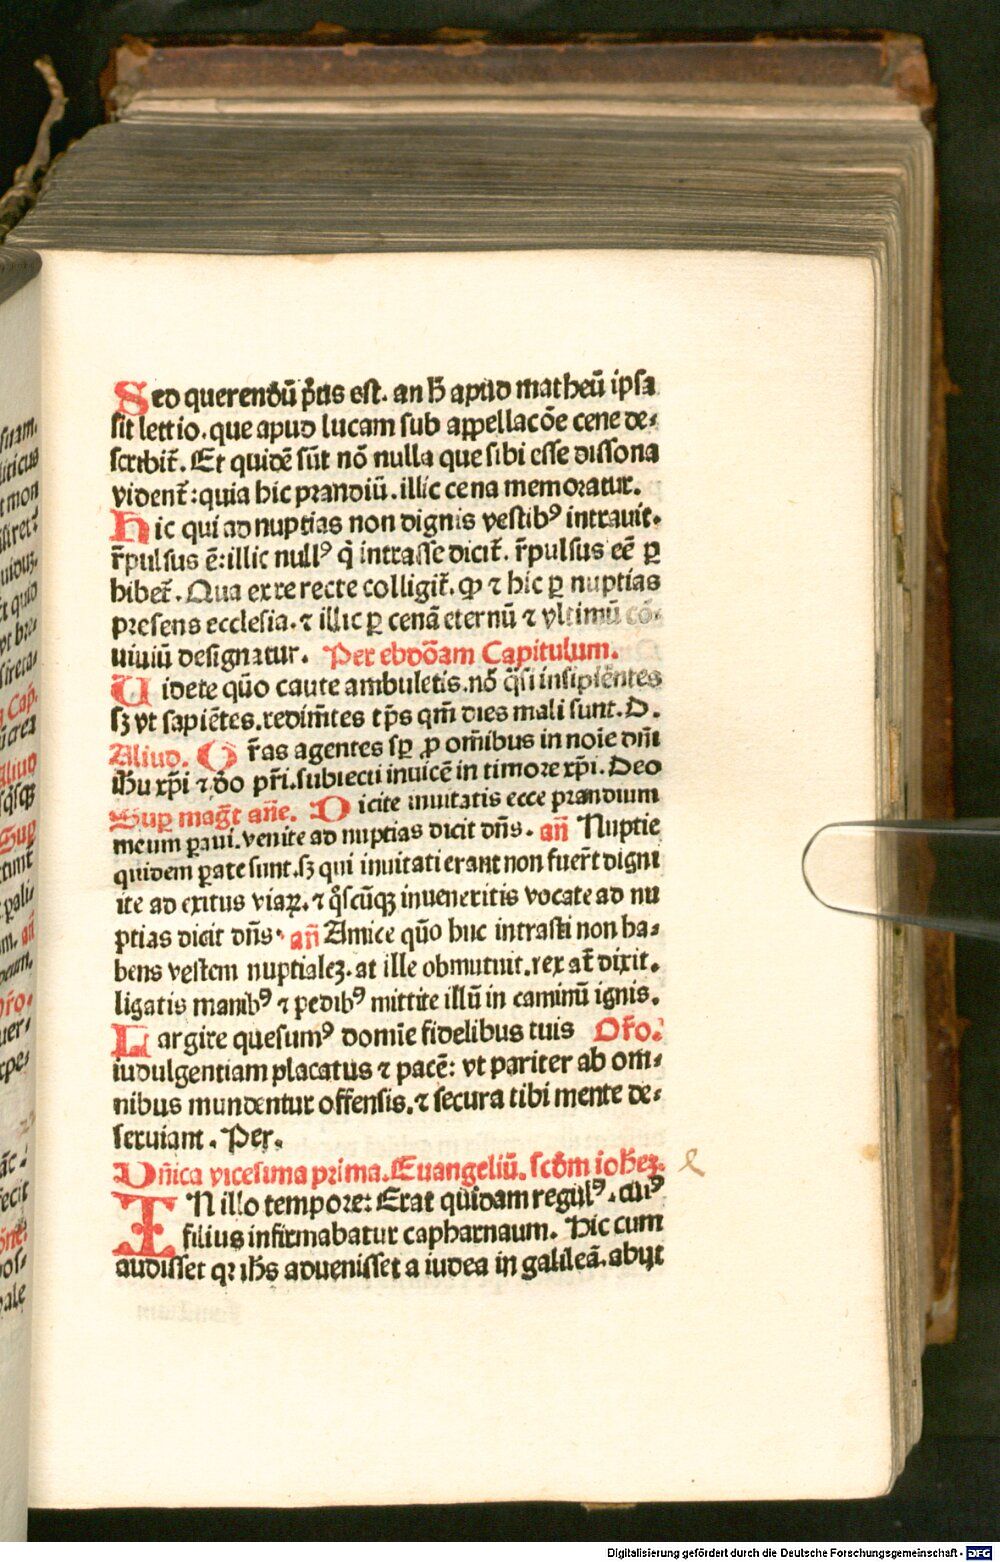 Sed querendū pͥus est. an h̄ apud matheū ipsa
sit lettio. que apud lucam sub appellacōe cene de⸗
scribit̄. Et quidē sūt nō nulla que sibi esse dissona
vident̄: quia hic prandiū. illic cena memoratur.
Hic qui ad nuptias non dignis vestibꝰ intrauit.
r̄pulsus ē: illic nullꝰ q̇ intrasse dicit̄. r̄pulsus eē ꝑ
hibet̄. Qua ex re recte colligit̄. ꝙ ⁊ hic ꝑ nuptias
presens ecclesia. ⁊ illic ꝑ cenā eternū ⁊ vltimū cō⸗
uiuiū designatur. Per ebdōam Capitulum.
Uidete qūo caute ambuletis. nō q̄si insipientes
sꝫ vt sapiētes. redim̄tes tp̄s qm̄ dies mali sunt. D.
Aliud. Gr̄as agentes sꝑ ꝓ om̄ibus in noīe dn̄i
ih̄u xp̄i ⁊ dō pr̄i. subiecti inuicē in timore xp̄i. Deo
Suꝑ maḡt an̄e. Dicite inuitatis ecce prandium
meum ꝑaui. venite ad nuptias dicit dn̄s. an̄ Nuptie
quidem ꝑate sunt. sꝫ qui inuitati erant non fuer̄t digni
ite ad exitus viaꝝ. ⁊ q̇scūqꝫ inueneritis vocate ad nu
ptias dicit dn̄s. an̄ Amice qūo huc intrasti non ha⸗
bens vestem nuptialeꝫ. at ille obmutuit. rex at̄ dixit.
ligatis manibꝰ ⁊ pedibꝰ mittite illū in caminū ignis.
Largire quesumꝰ domīe fidelibus tuis Or̄o.
iudulgentiam placatus ⁊ pacē: vt pariter ab om⸗
nibus mundentur offensis. ⁊ secura tibi mente de⸗
seruiant. Per.
Dn̄ica vicesima prima. Euangeliū. scd̄m ioh̄eꝫ.
IN illo tempore: Erat quidam regulꝰ. cuiꝰ
filius infirmabatur capharnaum. Hic cum
audisset qꝛ ih̄s aduenisset a iudea in galileā. abijt
Digitalisierung gefördert durch die Deutsche Forschungsgemeinschaft - DFG